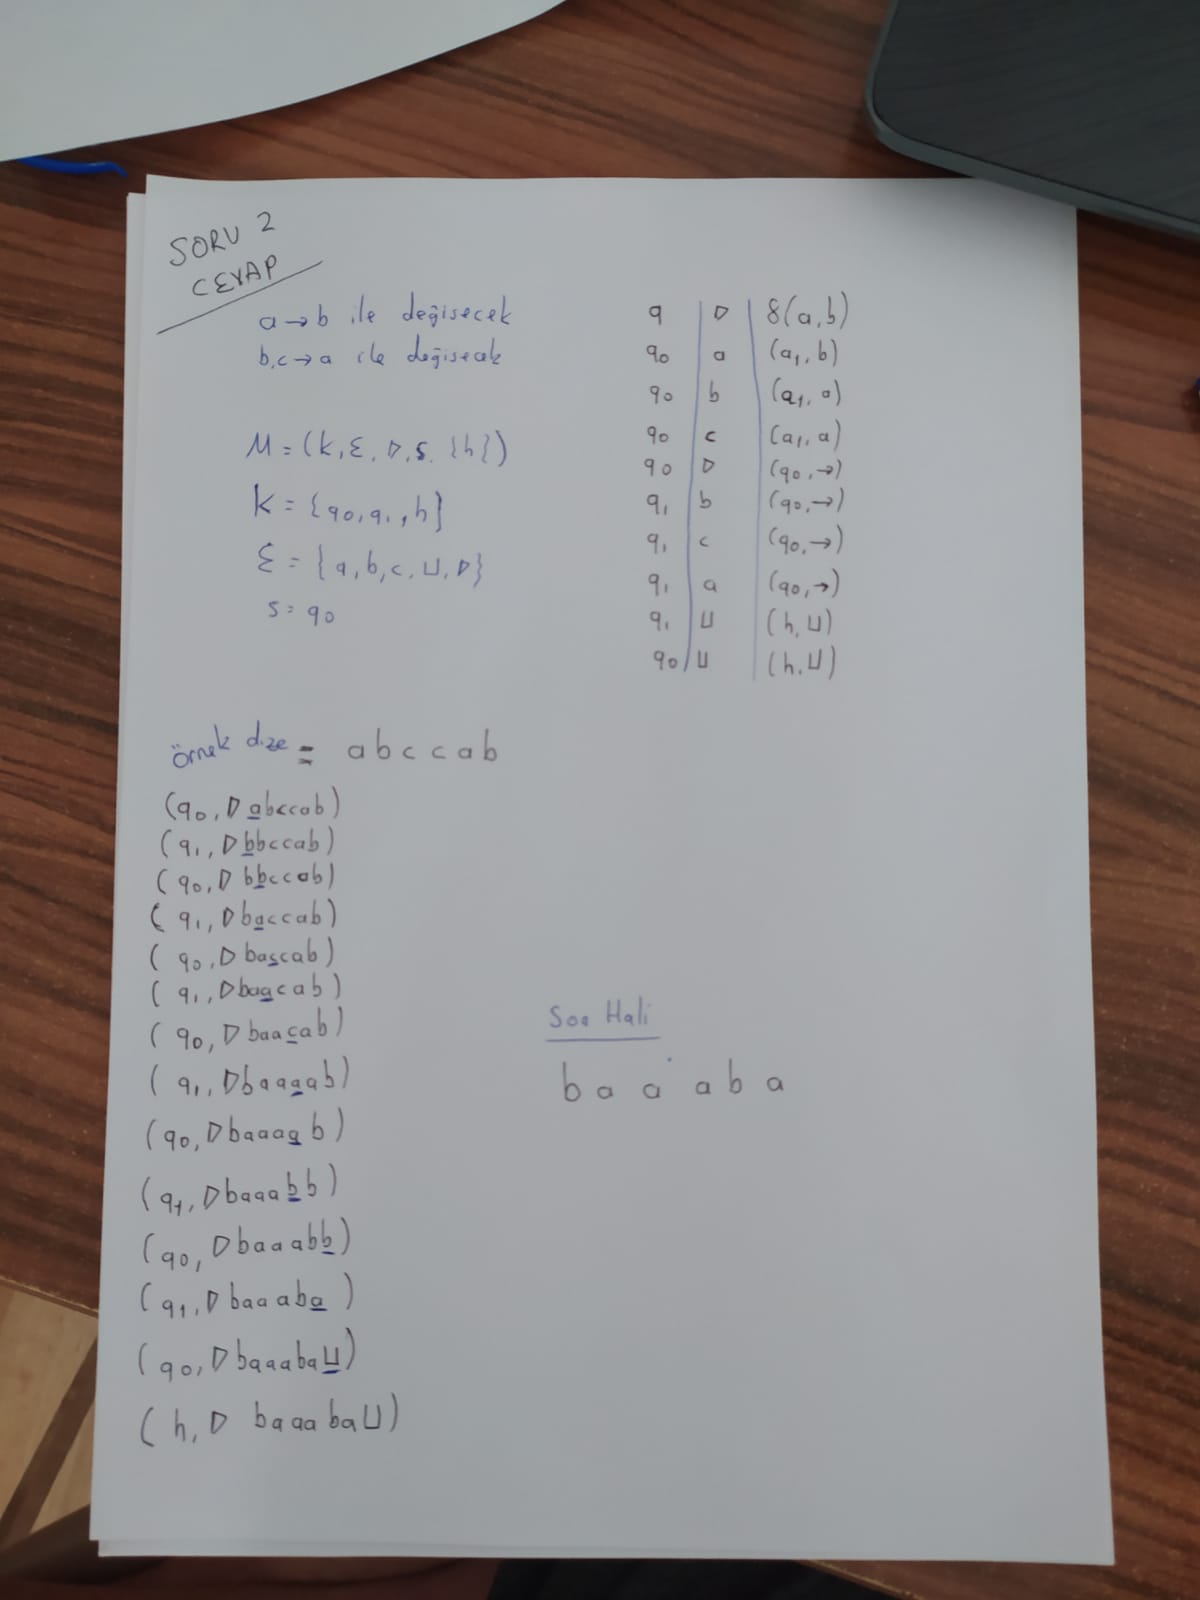 SORU 2
CEVAP
a→b ile değisecek
b,c→a ile değisecek
M=(k,Σ,▷,s,{h})
K={q0,q1,h}
Σ={a,b,c,⊔,▷}
s=q0
q | ▷ | δ(a,b)
q0 | a | (q1,b)
q0 | b | (q1,a)
q0 | c | (q1,a)
q0 | ▷ | (q0,→)
q1 | b | (q0,→)
q1 | c | (q0,→)
q1 | a | (q0,→)
q1 | ⊔ | (h,⊔)
q0 | ⊔ | (h,⊔)
örnek dize = abccab
(q0,▷abccab)
(q1,▷bbccab)
(q0,▷bbccab)
(q1,▷baccab)
(q0,▷baccab)
(q1,▷baacab)
(q0,▷baacab)
(q1,▷baaaab)
(q0,▷baaaab)
(q1,▷baaabb)
(q0,▷baaabb)
(q1,▷baaaba)
(q0,▷baaaba⊔)
(h,▷baaaba⊔)
Son Hali
baaaba